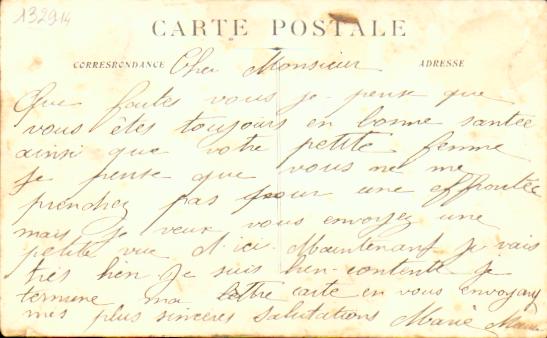 132914
CARTE POSTALE
CORRESPONDANCE Cher Monsieur ADRESSE
Que faites vous je pense que
vous êtes toujours en bonne santée
ainsi que votre petite femme
Je pense que vous ne me
prenchez pas pour une effrontée
mais je veux vous envoyez une
petite vue d'ici. Maintenant je vais
très bien je suis bien contente je
termine ma carte en vous envoyant
mes plus sincères salutations Marie